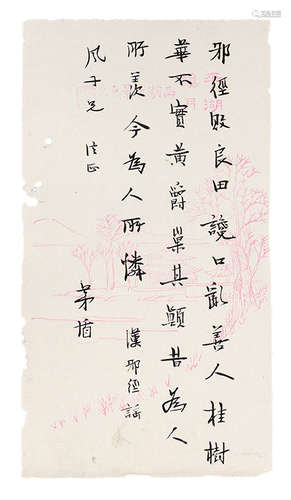 邪徑敗良田讒口亂善人桂樹
華不實黃爵巢其顛昔為人
所羨今為人所憐 漢邪徑謠
风子兄 法正
茅盾